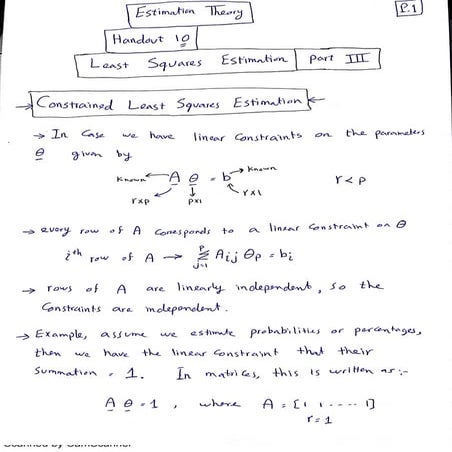 Estimation Theory
P.1
Handout 10
Least Squares Estimation Part III
Constrained Least Squares Estimation
→ In Case we have linear Constraints on the parameters
θ given by
Known A θ = b Known r < p
r×p p×1 r×1
→ every row of A Corresponds to a linear Constraint on θ
ith row of A → Σ_{j=1}^{p} A_{ij} θ_p = b_i
→ rows of A are linearly independent, so the
Constraints are independent.
→ Example, assume we estimate probabilities or percentages,
then we have the linear Constraint that their
Summation = 1. In matrices, this is written as:-
A θ = 1 , where A = [1 1 ---- 1]
r = 1
Scanned by CamScanner